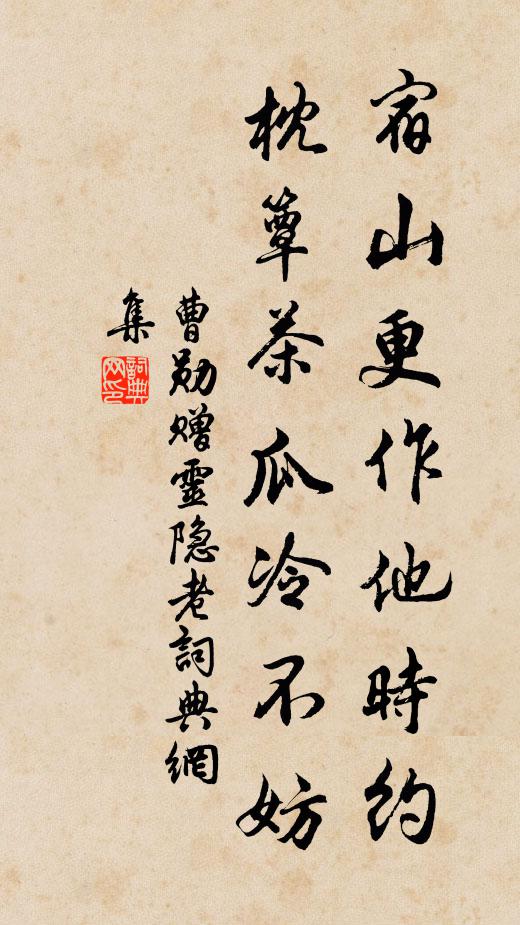 宿山更作他時約
枕簟茶瓜冷不妨
曹勛贈靈隐老詞典網
集
詞典网印